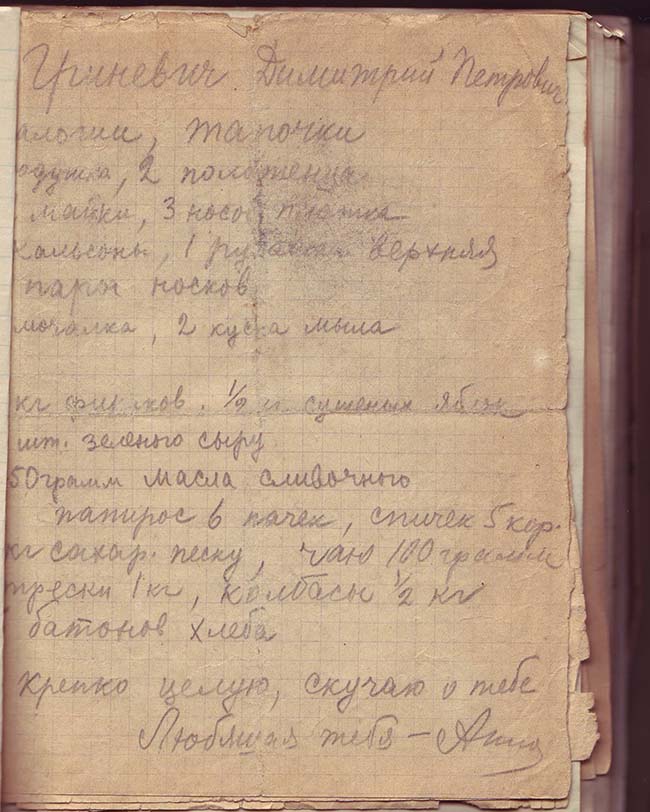 Гриневич Димитрий Петрович
алогии, тапочки
одушка, 2 полотенца
майки, 3 носов. платка
кальсоны, 1 рубашка верхняя
пары носков
мочалка, 2 куска мыла
кг фиников. 1/2 кг сушеных яблок
шт. зеленого сыру
50 грамм масла сливочного
папирос 6 пачек, спичек 5 кор.
кг сахар. песку, чаю 100 грамм
трески 1 кг, колбасы 1/2 кг
батонов хлеба
Крепко целую, скучаю о тебе
Любящая тебя – Анна